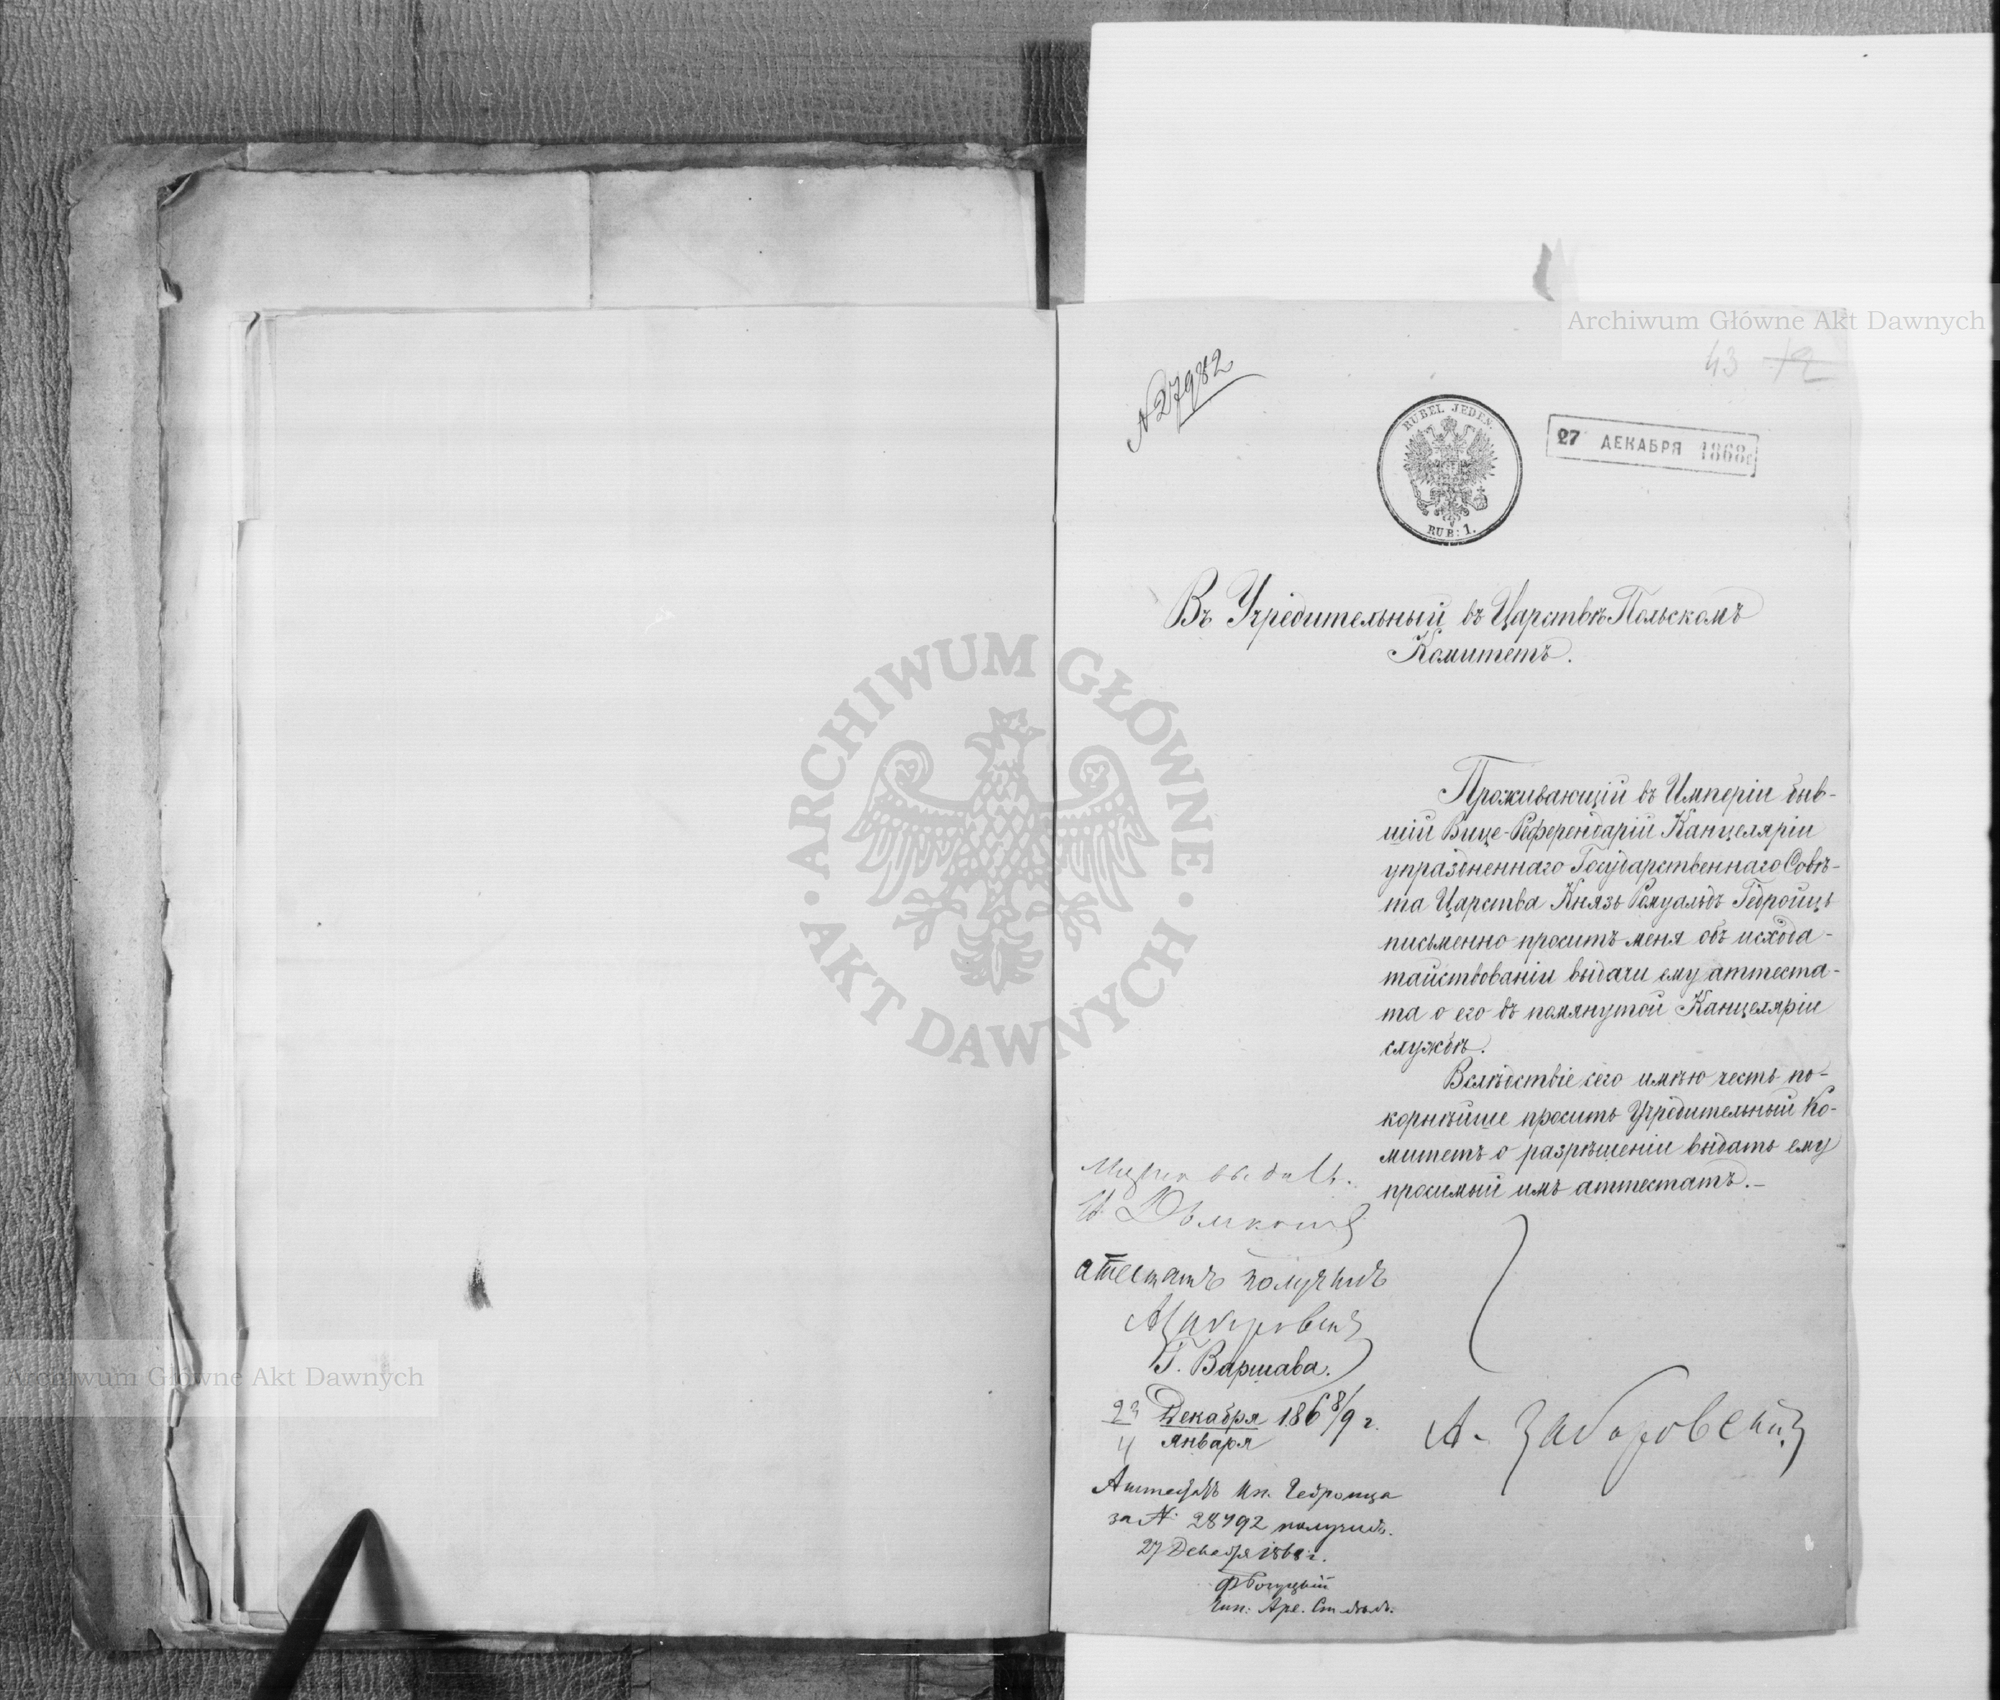 Archiwum Główne Akt Dawnych
43 12
N 27982
RUBEL JEDEN.
RUB: 1.
27 ДЕКАБРЯ 1868г
Въ Учредительный въ Царствѣ Польскомъ
Комитетъ.
ARCHIWUM GŁÓWNE AKT DAWNYCH
Проживающій въ Имперіи быв-
шій Вице-Референдарій Канцеляріи
упраздненнаго Государственнаго Совѣ-
та Царства Князь Ромуальдъ Гедройць
письменно проситъ меня объ исхода-
тайствованіи выдачи ему аттеста-
та о его въ помянутой Канцеляріи
службѣ.
Вслѣдствіе сего имѣю честь по-
корнѣйше просить Учредительный Ко-
митетъ о разрѣшеніи выдать ему
просимый имъ аттестатъ.-
выдать.
атестатъ получилъ
АЗаборовскій
Г. Варшава.
23 Декабря 1868/9 г.
4 Января
А. Заборовскій
Аттестатъ Кн. Гедройца
за N 28492 получилъ.
27 Декабря 1868 г.
Archiwum Główne Akt Dawnych